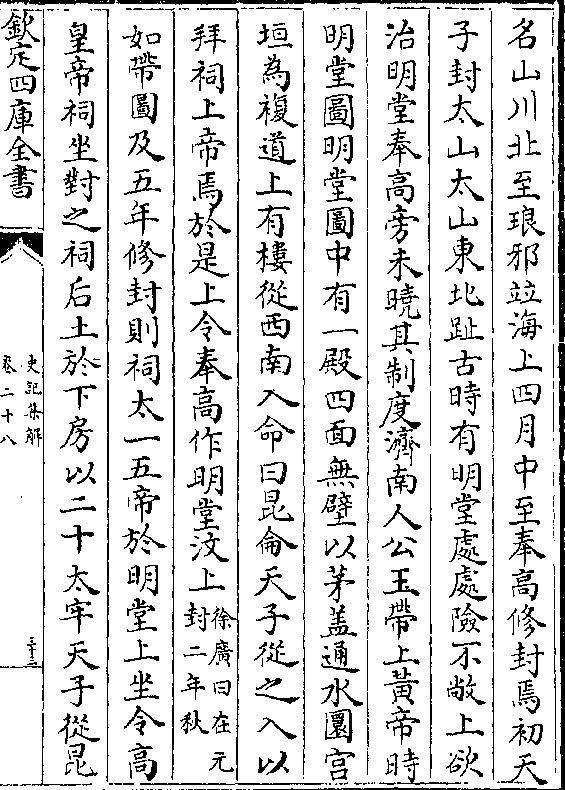 名山川北至琅邪竝海上四月中至奉高修封焉初天
子封太山太山東北趾古時有明堂處處險不敞上欲
治明堂奉高旁未曉其制度濟南人公玉帶上黃帝時
明堂圖明堂圖中有一殿四面無壁以茅盖通水圜宫
垣為複道上有樓從西南入命曰昆侖天子從之入以
拜祠上帝焉於是上令奉高作明堂汶上徐廣曰在元封二年秋
如帶圖及五年修封則祠太一五帝於明堂上坐令高
皇帝祠坐對之祠后土於下房以二十太牢天子從昆
欽定四庫全書
史記集解
卷二十八
三十三